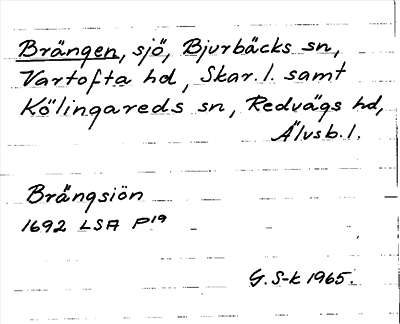 Brängen, sjö, Bjurbäcks sn,
Vartofta hd, Skar. l. samt
Kölingareds sn, Redvägs hd,
Älvsb. l.
Brängsiön
1692 LSA P19
G. S-k 1965.